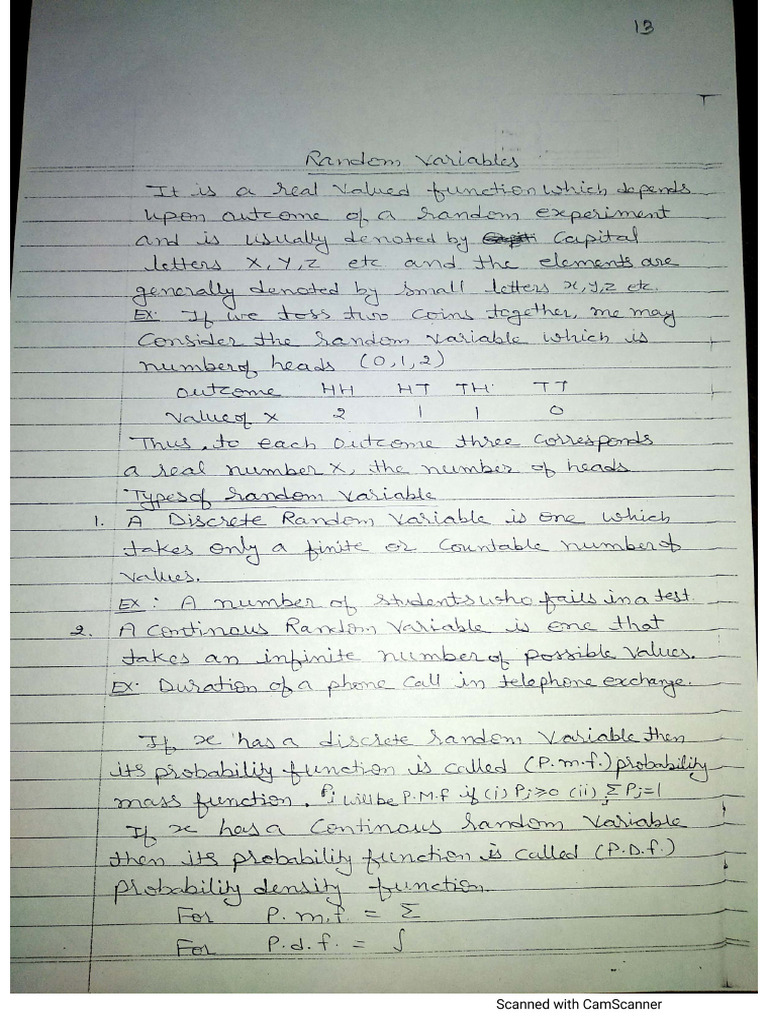 13
Random Variables
It is a real valued function which depends
upon outcome of a random experiment
and is usually denoted by Capital
letters X, Y, Z etc and the elements are
generally denoted by small letters x, y, z etc.
Ex: If we toss two coins together, me may
Consider the random variable which is
number of heads (0,1,2)
outcome HH HT TH TT
Value of x 2 1 1 0
Thus, to each outcome three corresponds
a real number x, the number of heads
Types of random variable
1. A Discrete Random Variable is one which
takes only a finite or countable number of
values.
Ex: A number of students who fails in a test.
2. A Continous Random Variable is one that
takes an infinite number of possible values.
Ex: Duration of a phone call in telephone exchange.
If x has a discrete random variable then
its probability function is called (P.m.f.) probability
mass function. Pi will be P.M.f if (i) Pi ≥ 0 (ii) Σ Pi = 1
If x has a Continous random variable
then its probability function is called (P.D.f.)
Probability density function.
For P.m.f. = Σ
For P.d.f. = ∫
Scanned with CamScanner